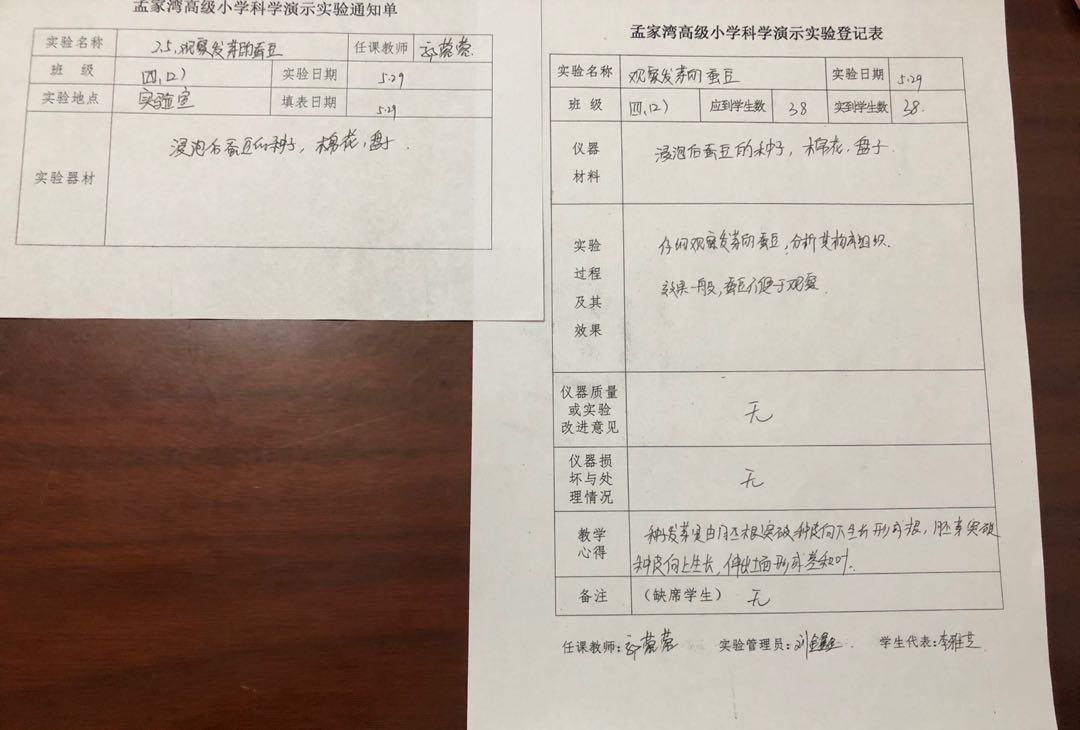 孟家湾高级小学科学演示实验通知单
实验名称 2.5.观察发芽的蚕豆 任课教师
班 级 四.(2) 实验日期 5.29
实验地点 实验室 填表日期 5.29
实验器材 浸泡后蚕豆的种子,棉花.盘子.
孟家湾高级小学科学演示实验登记表
实验名称 观察发芽的蚕豆 实验日期 5.29
班 级 四.(2) 应到学生数 38 实到学生数 38.
仪器材料 浸泡后蚕豆的种子,棉花.盘子.
实验过程及其效果 仔细观察发芽的蚕豆,分析其构成组织.
效果一般,蚕豆不便于观察.
仪器质量或实验改进意见 无
仪器损坏与处理情况 无
教学心得 种子发芽是由胚根突破种皮向下生长形成根,胚芽突破
种皮向上生长,伸出土面形成茎和叶.
备注 (缺席学生) 无
任课教师: 实验管理员: 学生代表: